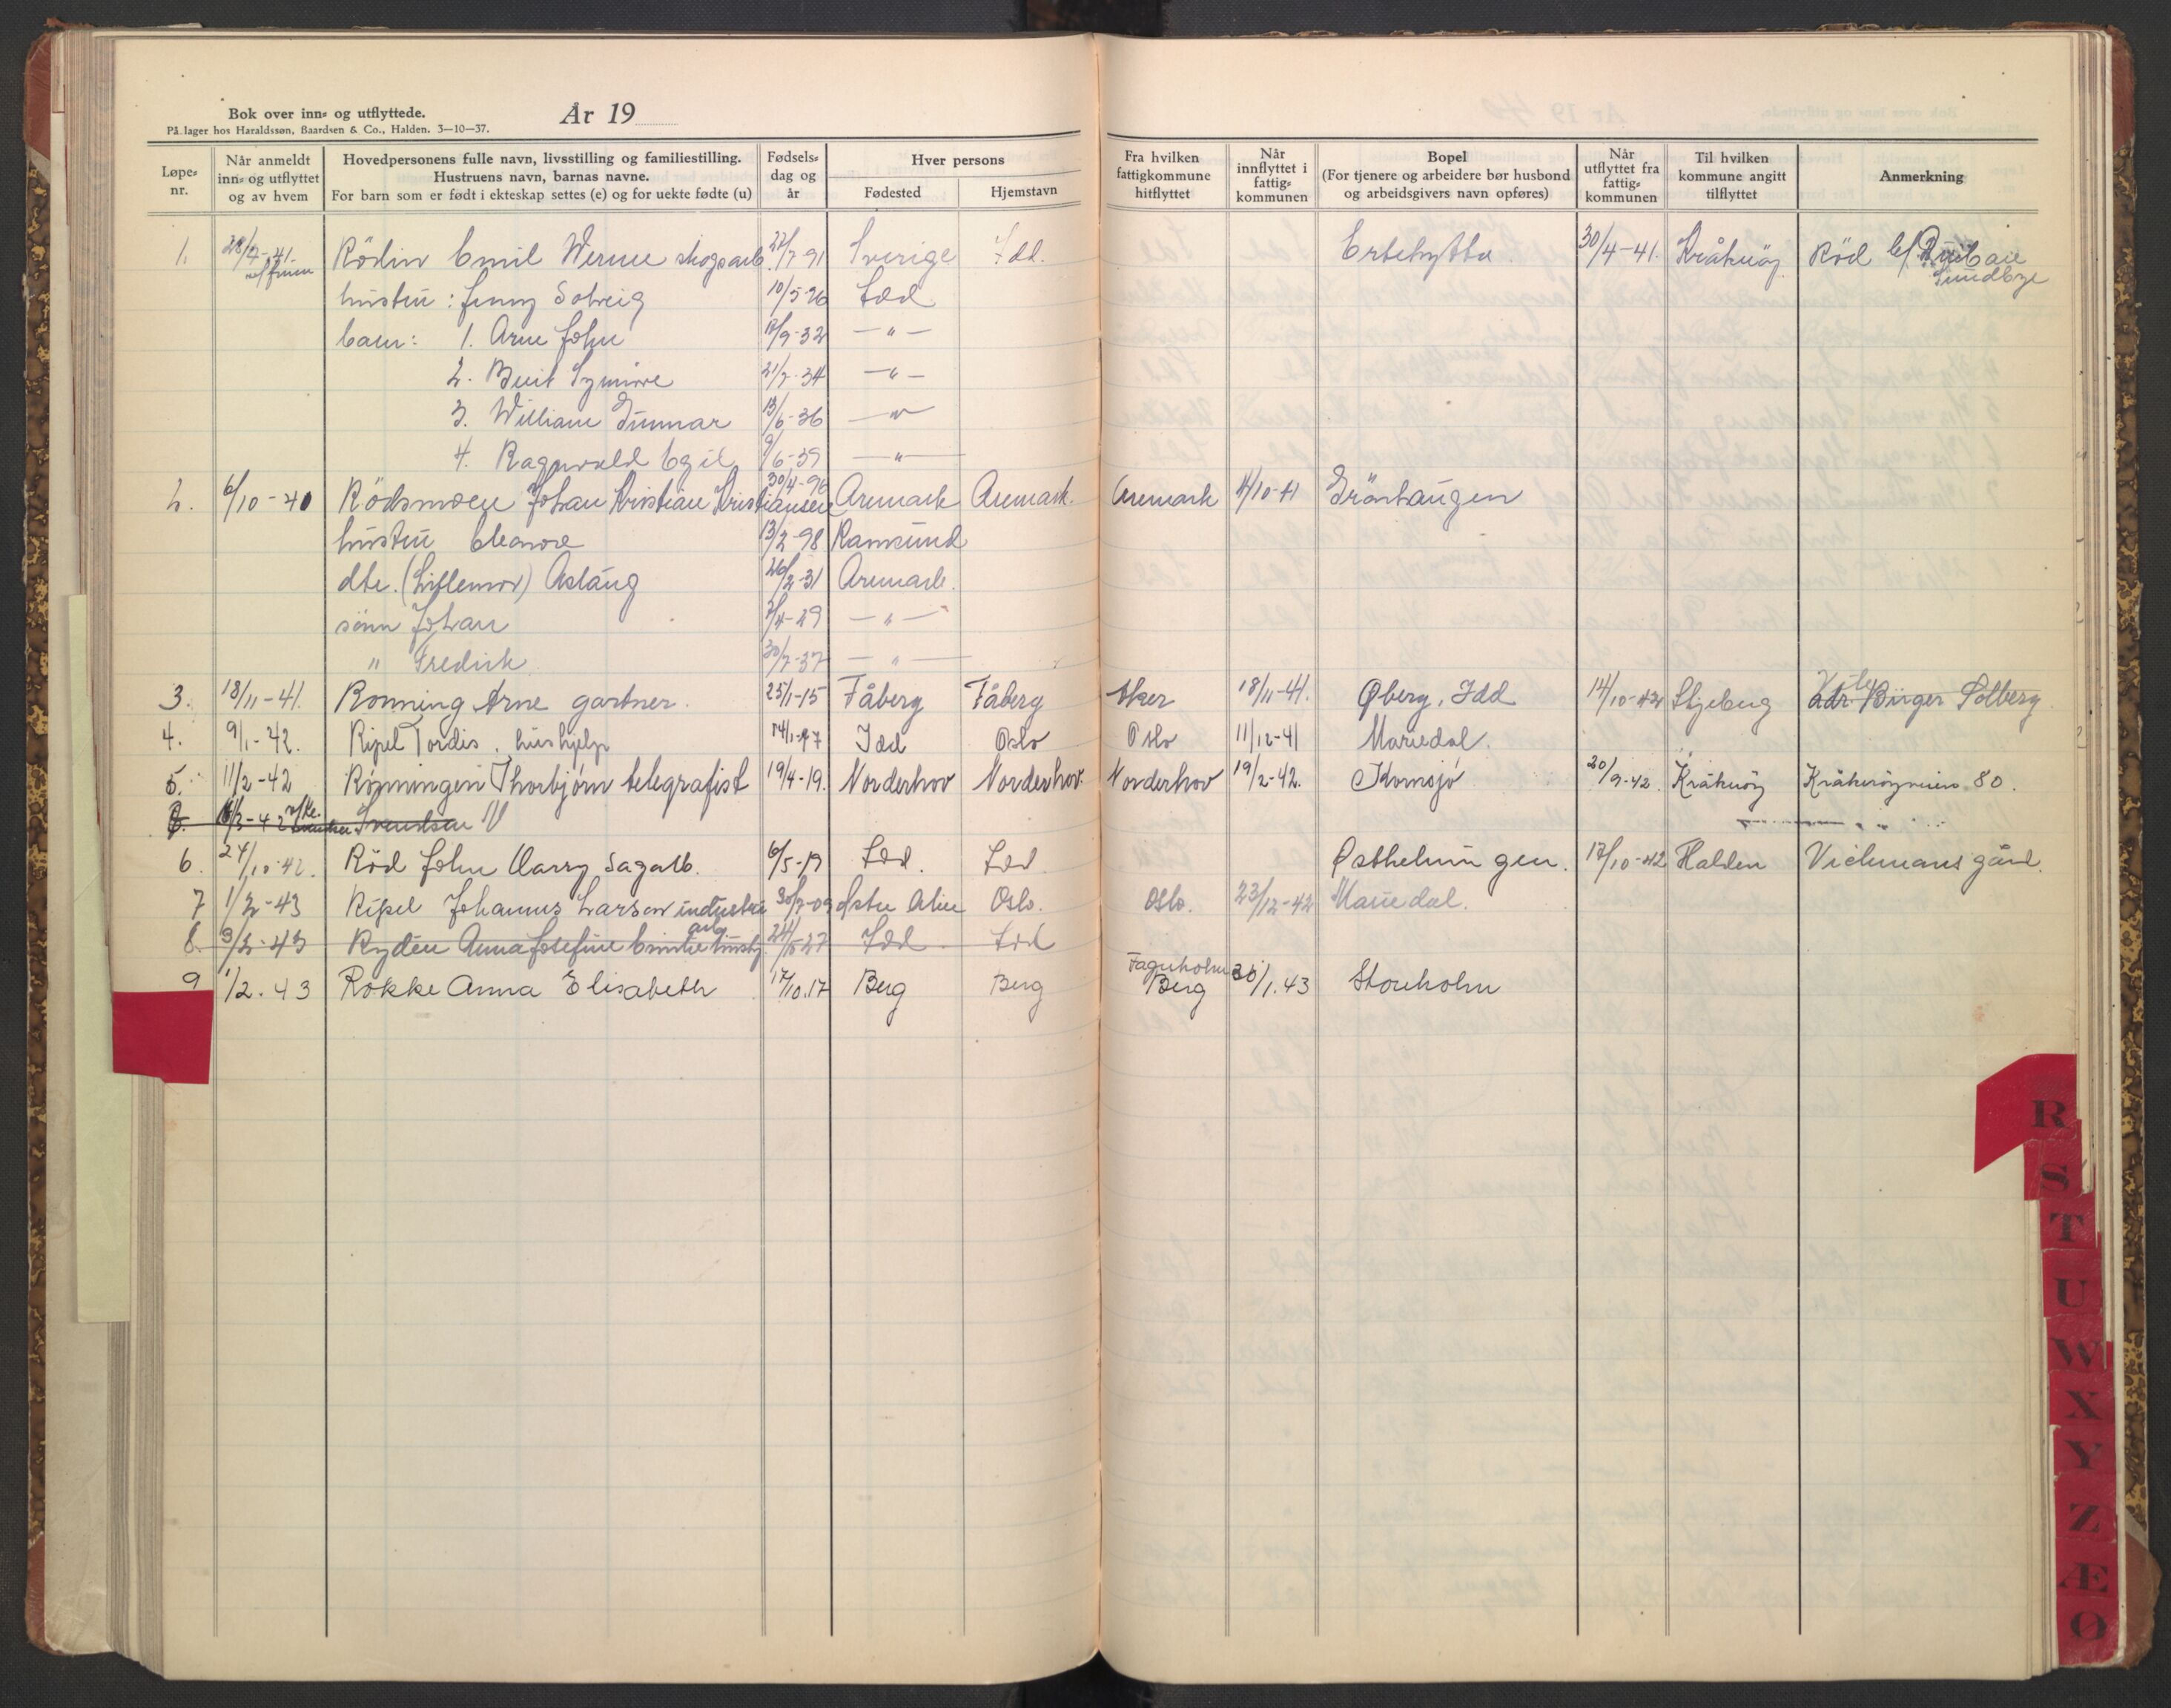 Bok over inn- og utflyttede.
På lager hos Haraldssøn, Baardsen & Co., Halden. 3—10—37.
År 19
Løpe-nr.
Når anmeldt inn- og utflyttet og av hvem
Hovedpersonens fulle navn, livsstilling og familiestilling.
Hustruens navn, barnas navne.
For barn som er født i ekteskap settes (e) og for uekte fødte (u)
Fødsels-dag og år
Hver persons
Fødested
Hjemstavn
Fra hvilken fattigkommune hitflyttet
Når innflyttet i fattig-kommunen
Bopel
(For tjenere og arbeidere bør husbond og arbeidsgivers navn opføres)
Når utflyttet fra fattig-kommunen
Til hvilken kommune angitt tilflyttet
Anmerkning
1. 28/4-41. Rödin Emil Werner skogsarb. 22/7 91 Sverige Idd. Ertehytta 30/4-41. Kråkeröy Rød
Sundbye
hustru: Jenny Solveig 10/5-26 Idd
barn: 1. Arne John /9-32 —"—
2. Berit Synnøve 21/7-34 —"—
3. William Gunnar 13/6-36 —"—
4. Ragnvald Egil 9/6-39 —"—
2. 6/10-40 Rödsmoen Johan Kristian Kristiansen 30/4-96 Aremark Aremark. Aremark 4/10-41 Grönhaugen
hustru Eleonore 13/2-98 Ramsund
dtr. (Lillemor) Aslaug 26/2-31 Aremark.
sönn Johan 7/4-29 —"—
" Fredrik 30/7-37 —"—
3. 18/11-41. Rønning Arne gartner. 25/1-15 Fåberg Fåberg Aker 18/11-41. Øberg, Idd 14/10-42 Skjeberg adr. Birger Solberg
4. 9/1-42. Ripel Tordis. hushjelp 14/1-97 Idd Oslo Oslo 11/12-41 Mariedal.
5. 11/2-42 Rønningen Thorbjørn telegrafist 19/4-19. Norderhov Norderhov. Norderhov 19/2-42. Kornsjø 20/9-42. Kråkerøy Kråkerøyveien 80.
/3-42 Svendsen
6. 24/10-42. Rød John Harry Sagarb. 6/5-19 Idd. Idd. Østhelungen. 17/10-42 Halden Vichmans gård.
7 1/2-43 Ripel Johannes Larsen industriarb. 30/7-09 Østre Aker Oslo. Oslo. 23/12-42 Mariedal.
8. 3/2-43 Rydén Anna Josefine hushj. 24/5-27 Idd Idd
9 1/2.43 Røkke Anna Elisabeth 17/10.17 Berg Berg Fagerholm Berg 30/1.43 Storeholm
R
S
T
U
W
X
Y
Z
Æ
Ø